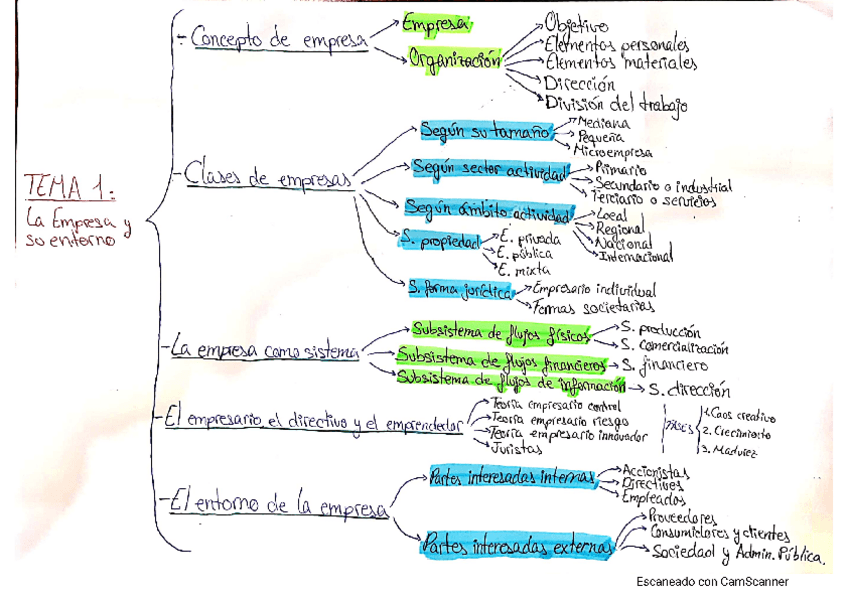 TEMA 1:
La Empresa y
su entorno
- Concepto de empresa
Empresa
Organización
Objetivo
Elementos personales
Elementos materiales
Dirección
División del trabajo
- Clases de empresas
Según su tamaño
Mediana
Pequeña
Microempresa
Según sector actividad
Primario
Secundario o industrial
Terciario o servicios
Según ámbito actividad
Local
Regional
Nacional
Internacional
S. propiedad
E. privada
E. pública
E. mixta
S. forma jurídica
Empresario individual
Formas societarias
- La empresa como sistema
Subsistema de flujos físicos
S. producción
S. comercialización
Subsistema de flujos financieros
S. financiero
Subsistema de flujos de información
S. dirección
- El empresario el directivo y el emprendedor
Teoría empresario control
Teoría empresario riesgo
Teoría empresario innovador
Juristas
FASES
1. Caos creativo
2. Crecimiento
3. Madurez
- El entorno de la empresa
Partes interesadas internas
Accionistas
Directivos
Empleados
Partes interesadas externas
Proveedores
Consumidores y clientes
Sociedad y Admin. Pública.
Escaneado con CamScanner